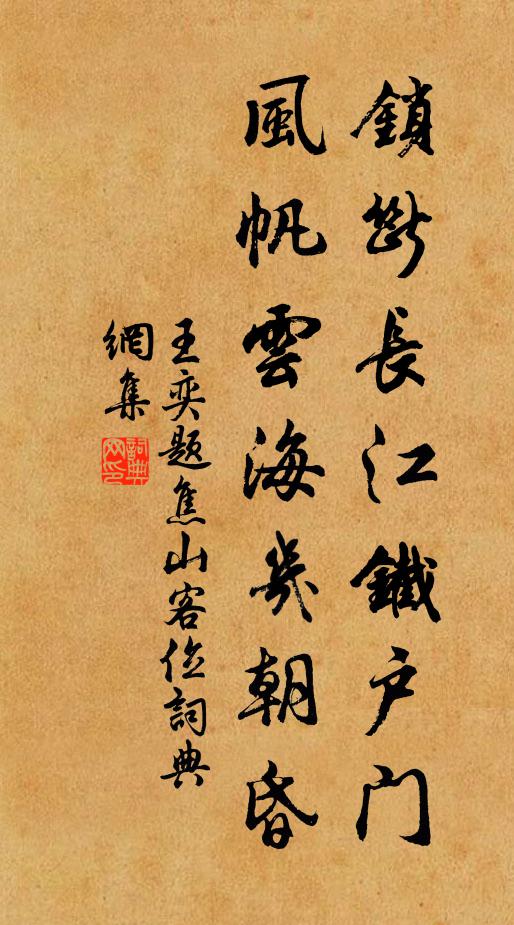 鎖斷長江鐵户门
風帆雲海幾朝昏
王奕題焦山客位詞典
網集
詞典網印